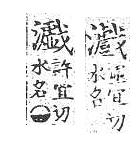 許宜切
水名
許宜切
水名